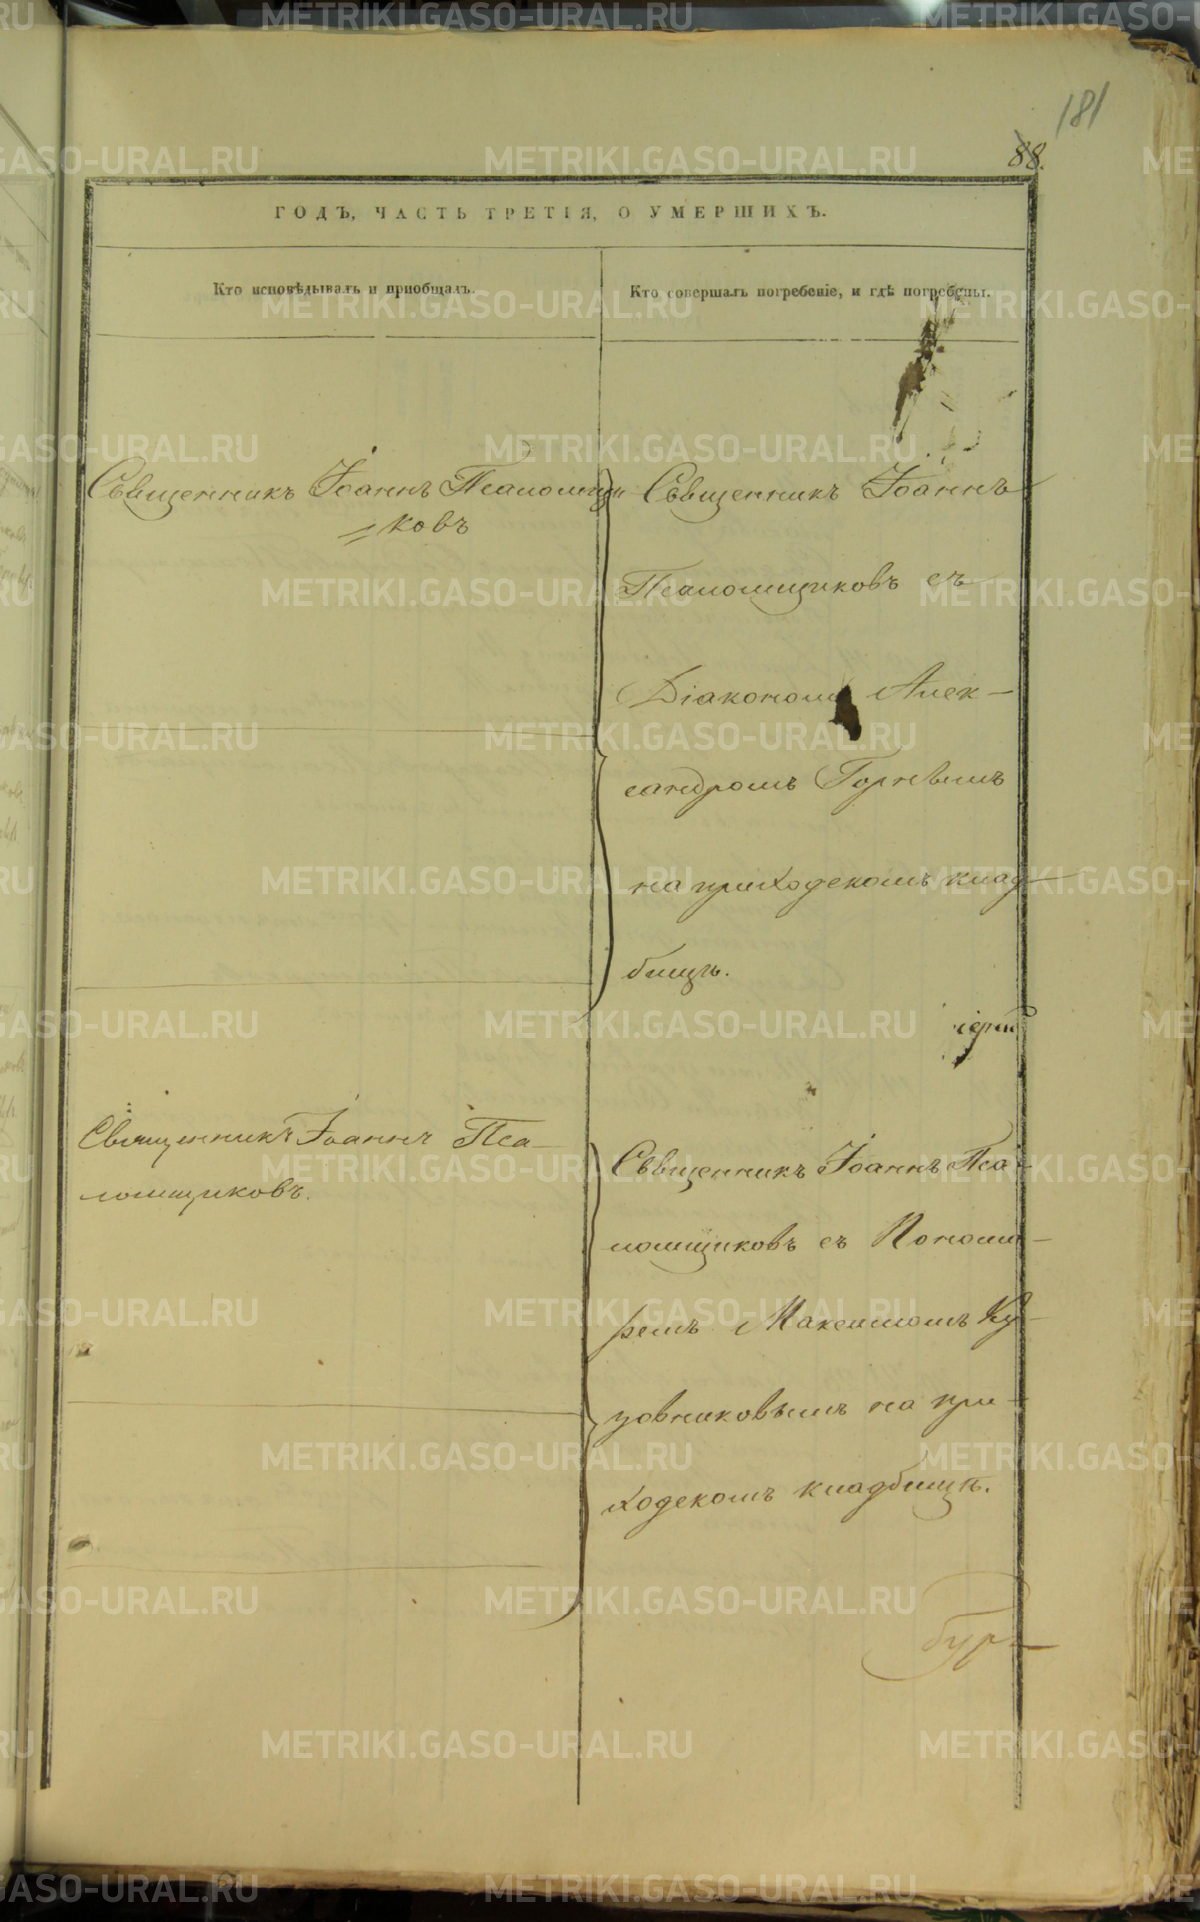 181
88.
ГОДЪ, ЧАСТЬ ТРЕТІЯ, О УМЕРШИХЪ.
Кто исповѣдывалъ и пріобщалъ.
Кто совершалъ погребеніе, и гдѣ погребены.
Свѣщенникъ Іоаннъ Псаломщи
ковъ
Свѣщенникъ Іоаннъ
Псаломщиковъ съ
Діакономъ Алек-
сандромъ Горнымъ
на приходскомъ клад-
бищѣ.
іерей
Священникъ Іоаннъ Пса-
ломщиковъ.
Свѣщенникъ Іоаннъ Пса-
ломщиковъ съ Понома-
ремъ Максимомъ
на при-
ходскомъ кладбищѣ.
METRIKI.GASO-URAL.RU